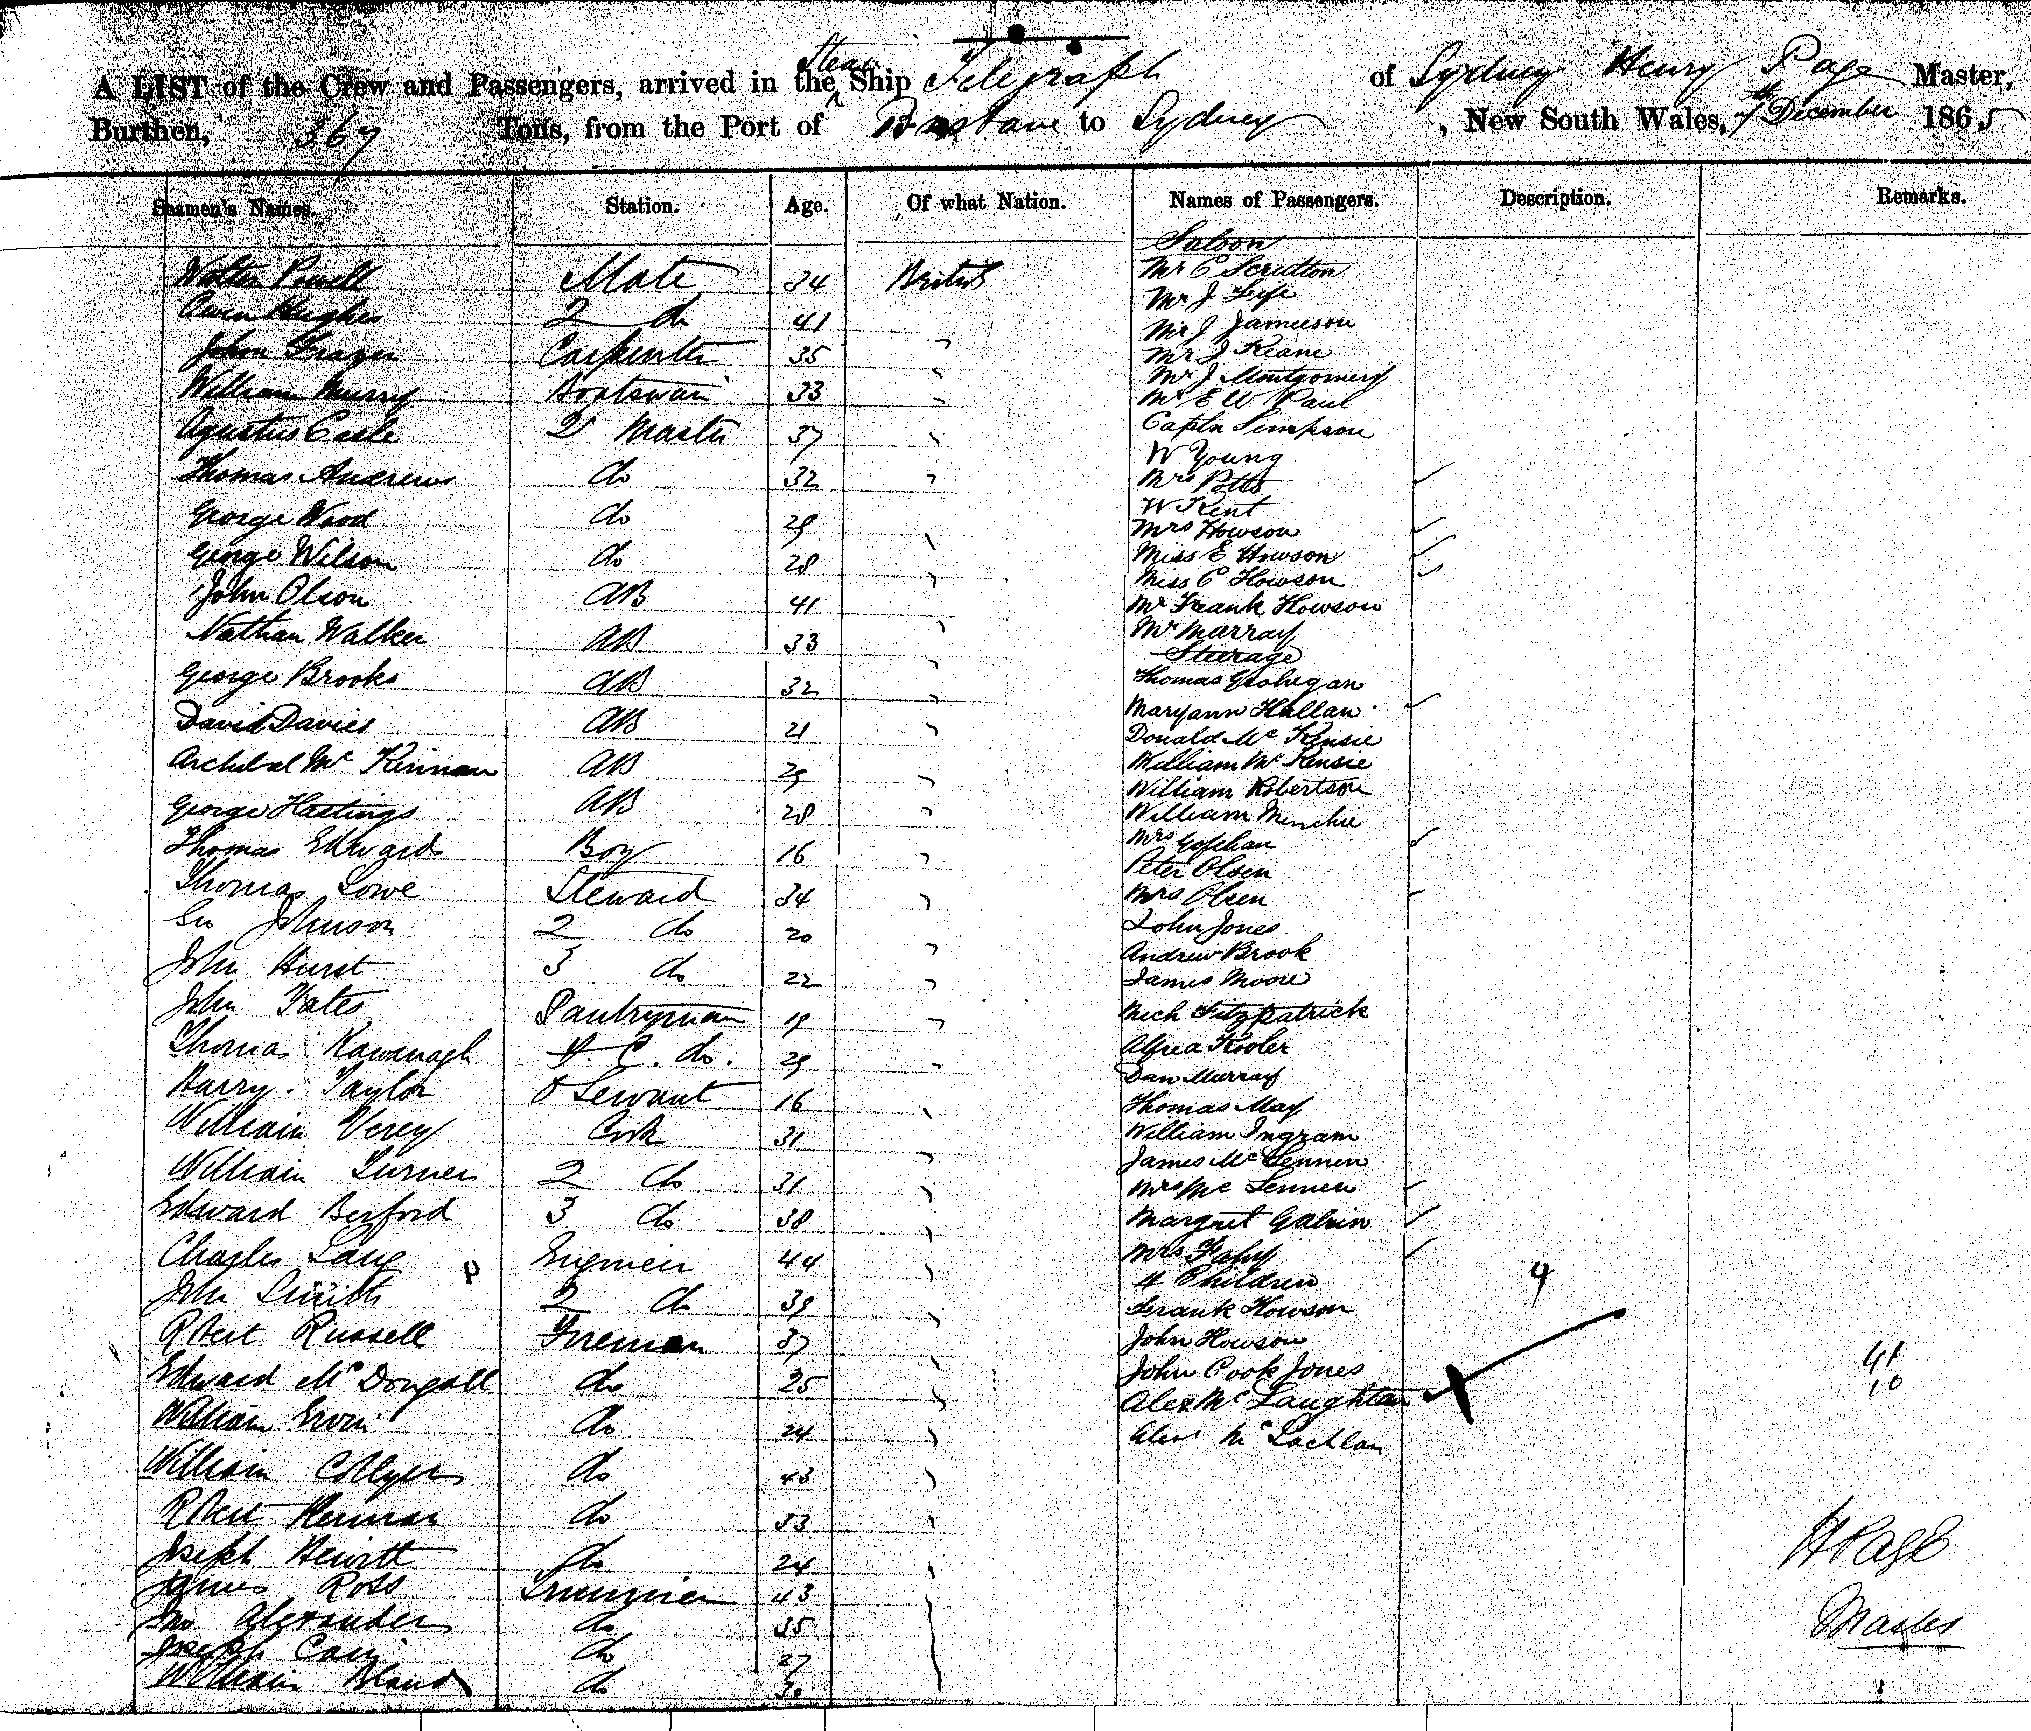 A LIST of the Crew and Passengers, arrived in the Steam Ship Telegraph of Sydney Henry Page Master,
Burthen, 367 Tons, from the Port of Brisbane to Sydney, New South Wales, 7th December 1865
Seamen's Names. Station. Age. Of what Nation. Names of Passengers. Description. Remarks.
Walter Powell Mate 34 British
Owen Hughes 2 do 41
John Frazer Carpenter 35 "
William Murry Boatswain 33 "
Agustus Castle Master 37 "
Thomas Andrews do 32 "
George Wood do 29 "
George Wilson do 28 "
John Olson AB 41 "
Nathan Walker AB 33 "
George Brooks AB 32 "
David Davies AB 21 "
Archibal Mc Kinnan AB 29 "
George Hastings AB 28 "
Thomas Edwards Boy 16 "
Thomas Lowe Steward 34 "
Geo Johnson 2 do 20 "
John Hurst 3 do 22 "
John Yates Pantryman 19 "
Thomas Kavanagh do. 29 "
Harry Taylor Servant 16 "
William Verey Cook 31 "
William Turner 2 do 31 "
Edward Berford 3 do 38 "
Charles Lang Engineer 44 "
John Smith 2 do 39 "
Robert Russell Fireman 37 "
Edward McDougall do 25 "
William do 24 "
William Collyer do 43 "
Robert do 33 "
Joseph Hewitt do 24 "
James Ross Trimmer 43
Jno Alexander do 35
Joseph do 27
William Bland do 30
Saloon
Mr C Scrutton
Mr J Fife
Mr J Jameison
Mr J Keane
Mr J Montgomery
Mr E W Paul
Captn Simpson
W Young
Mrs Potts
W Kent
Mrs Howson
Miss E Howson
Miss C Howson
Mr Frank Howson
Mr Murray
Steerage
Thomas Geohegan
Maryann Hallan
Donald Mc Kensie
William Mc Kensie
William Robertson
William Minchie
Mrs
Peter Olsen
Mrs Olsen
John Jones
Andrew Brook
James Moore
Mich Fitzpatrick
Dan Murray
Thomas May
William Ingram
James Mc Lennen
Mrs Mc Lennen
Margret Galvin
Mrs Fahy
4 Children 4
Frank Howson
John Howson
John Cook Jones
Alex Mc Laughlan
Alexr McLachlan
41
10
H Page
Master